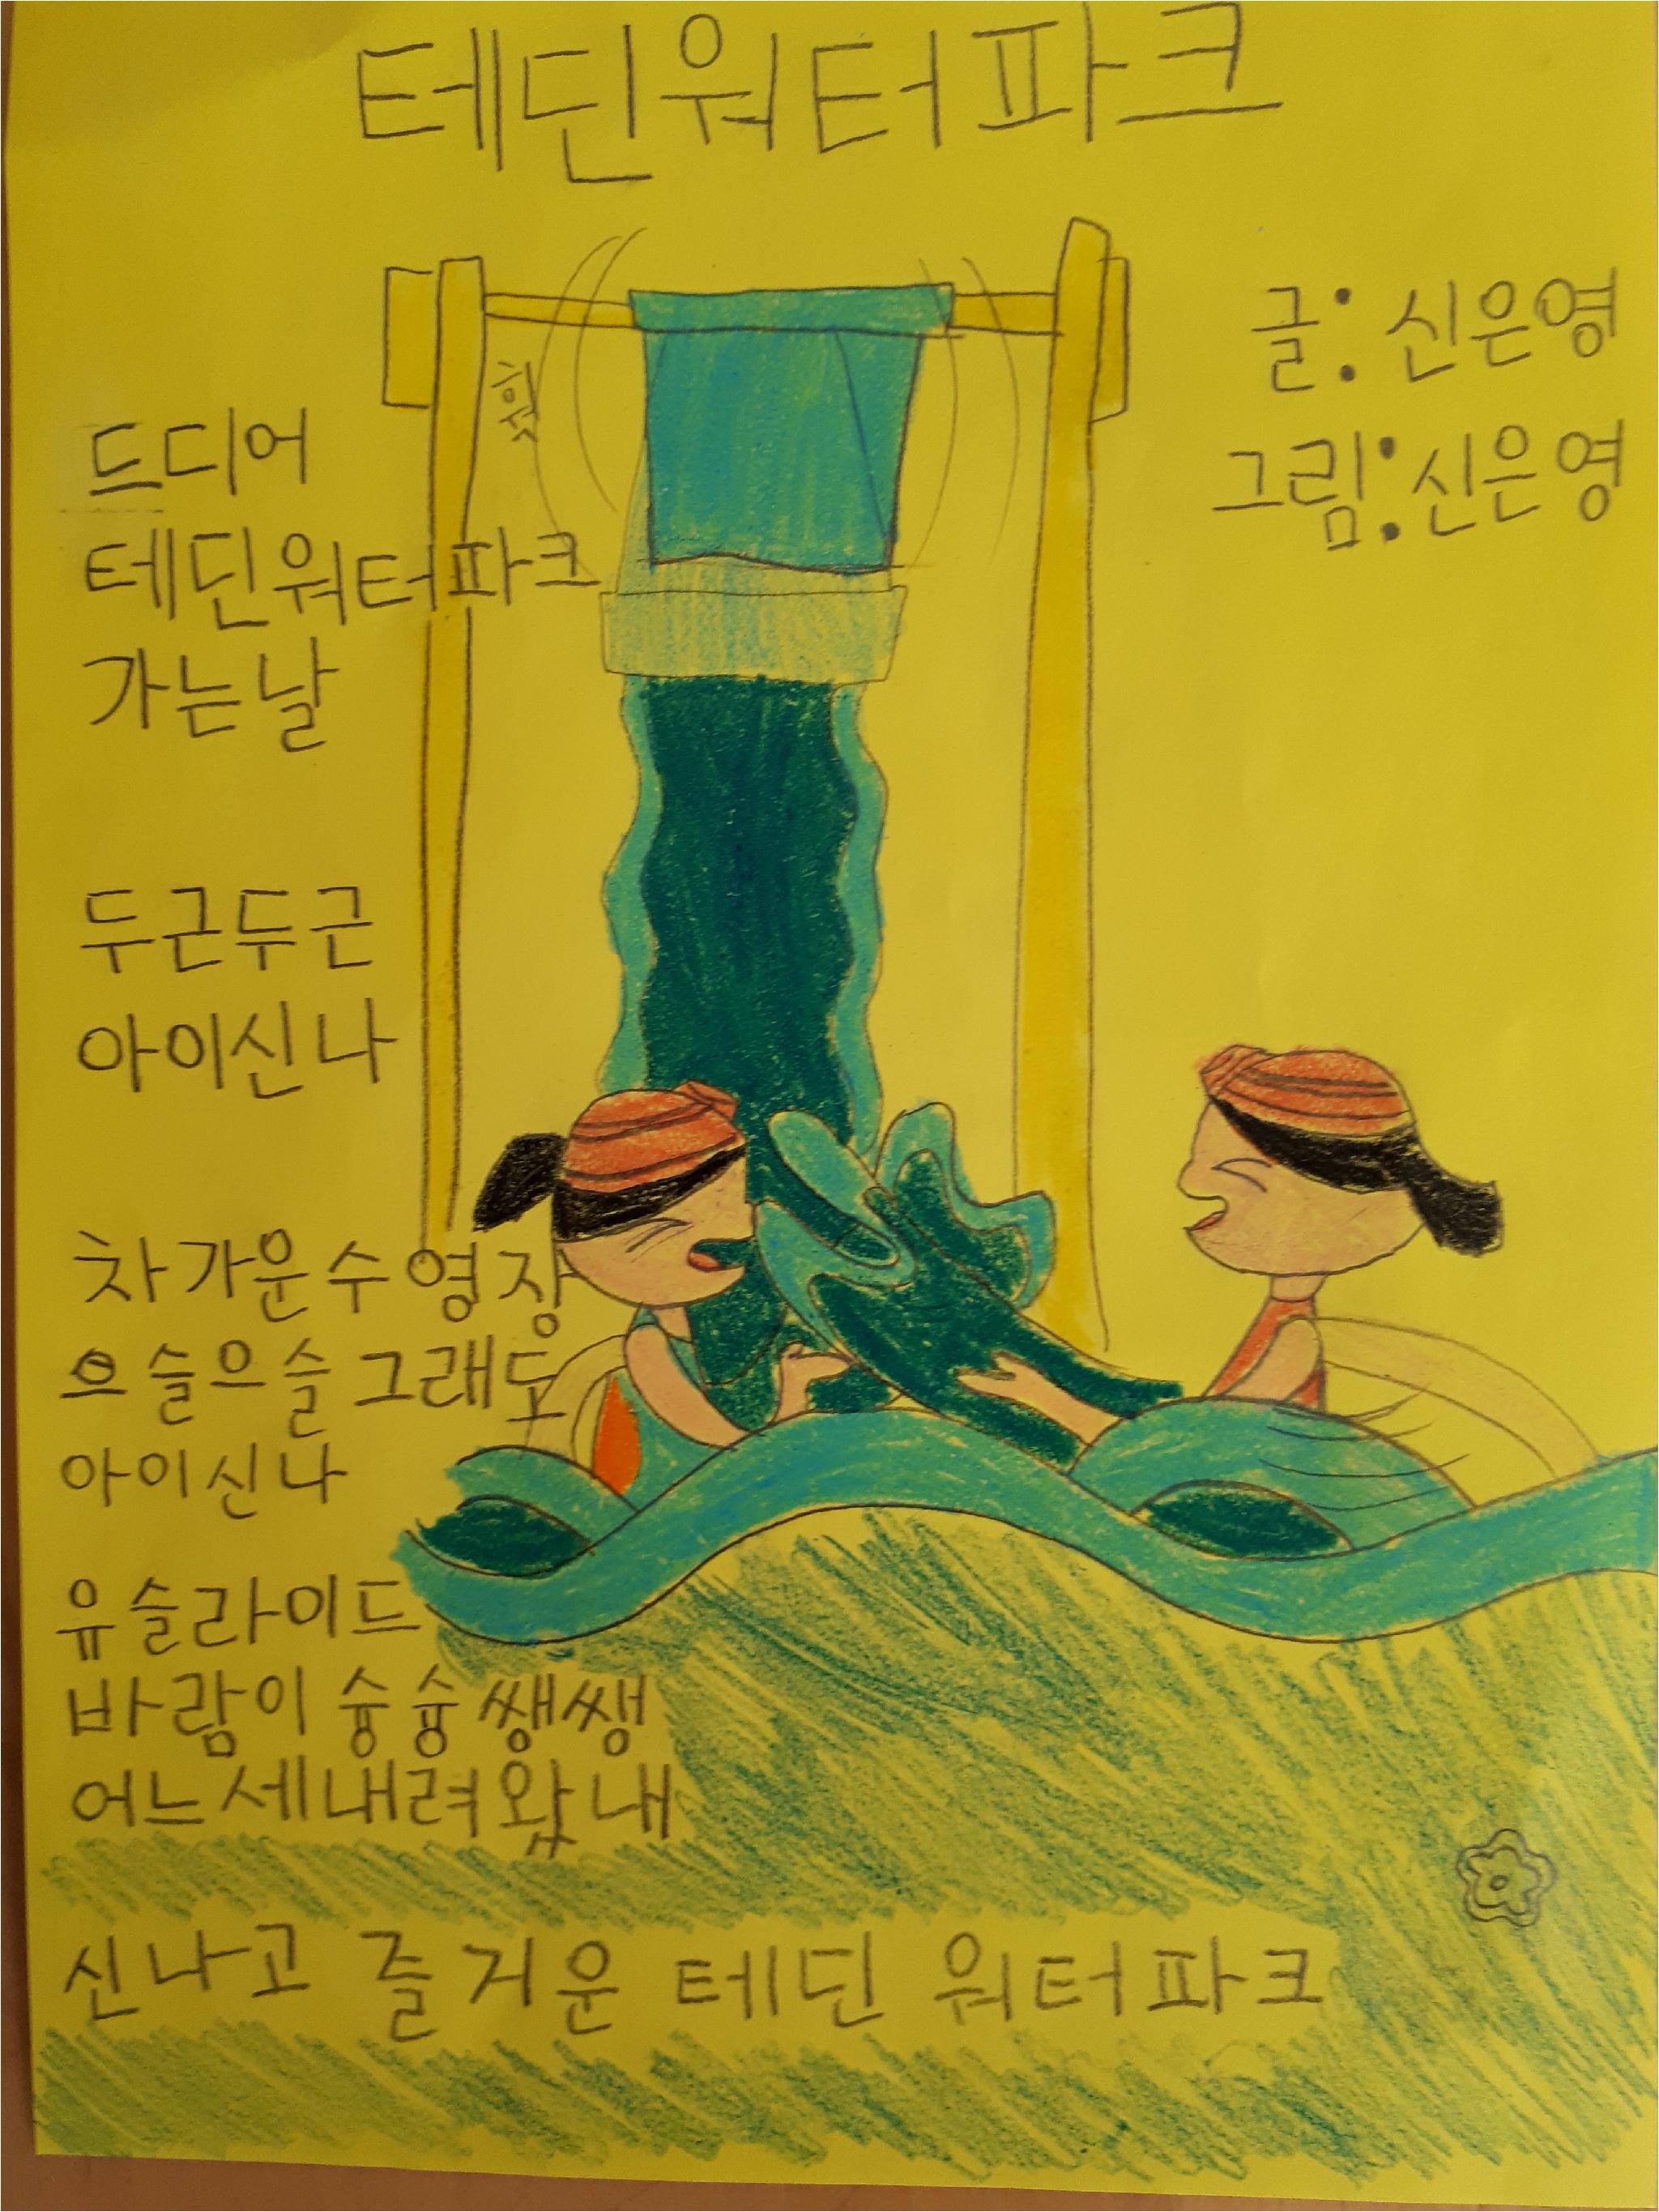 테딘워터파크
글: 신은영
그림: 신은영
휙
드디어
테딘워터파크
가는날
두근두근
아이신나
차가운수영장
으슬으슬그래도
아이신나
유슬라이드
바람이 슝슝 쌩쌩
어느세내려왔내
신나고 즐거운 테딘 워터파크